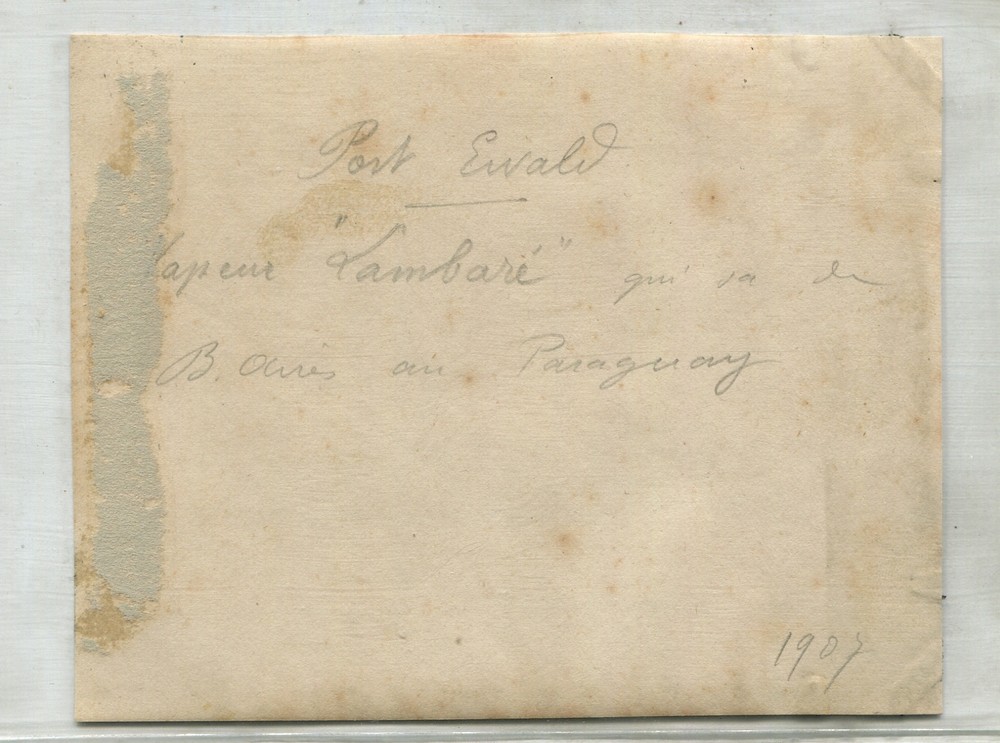 Port Ewald
Vapeur "Lambaré" qui va de
B. Aires au Paraguay
1907